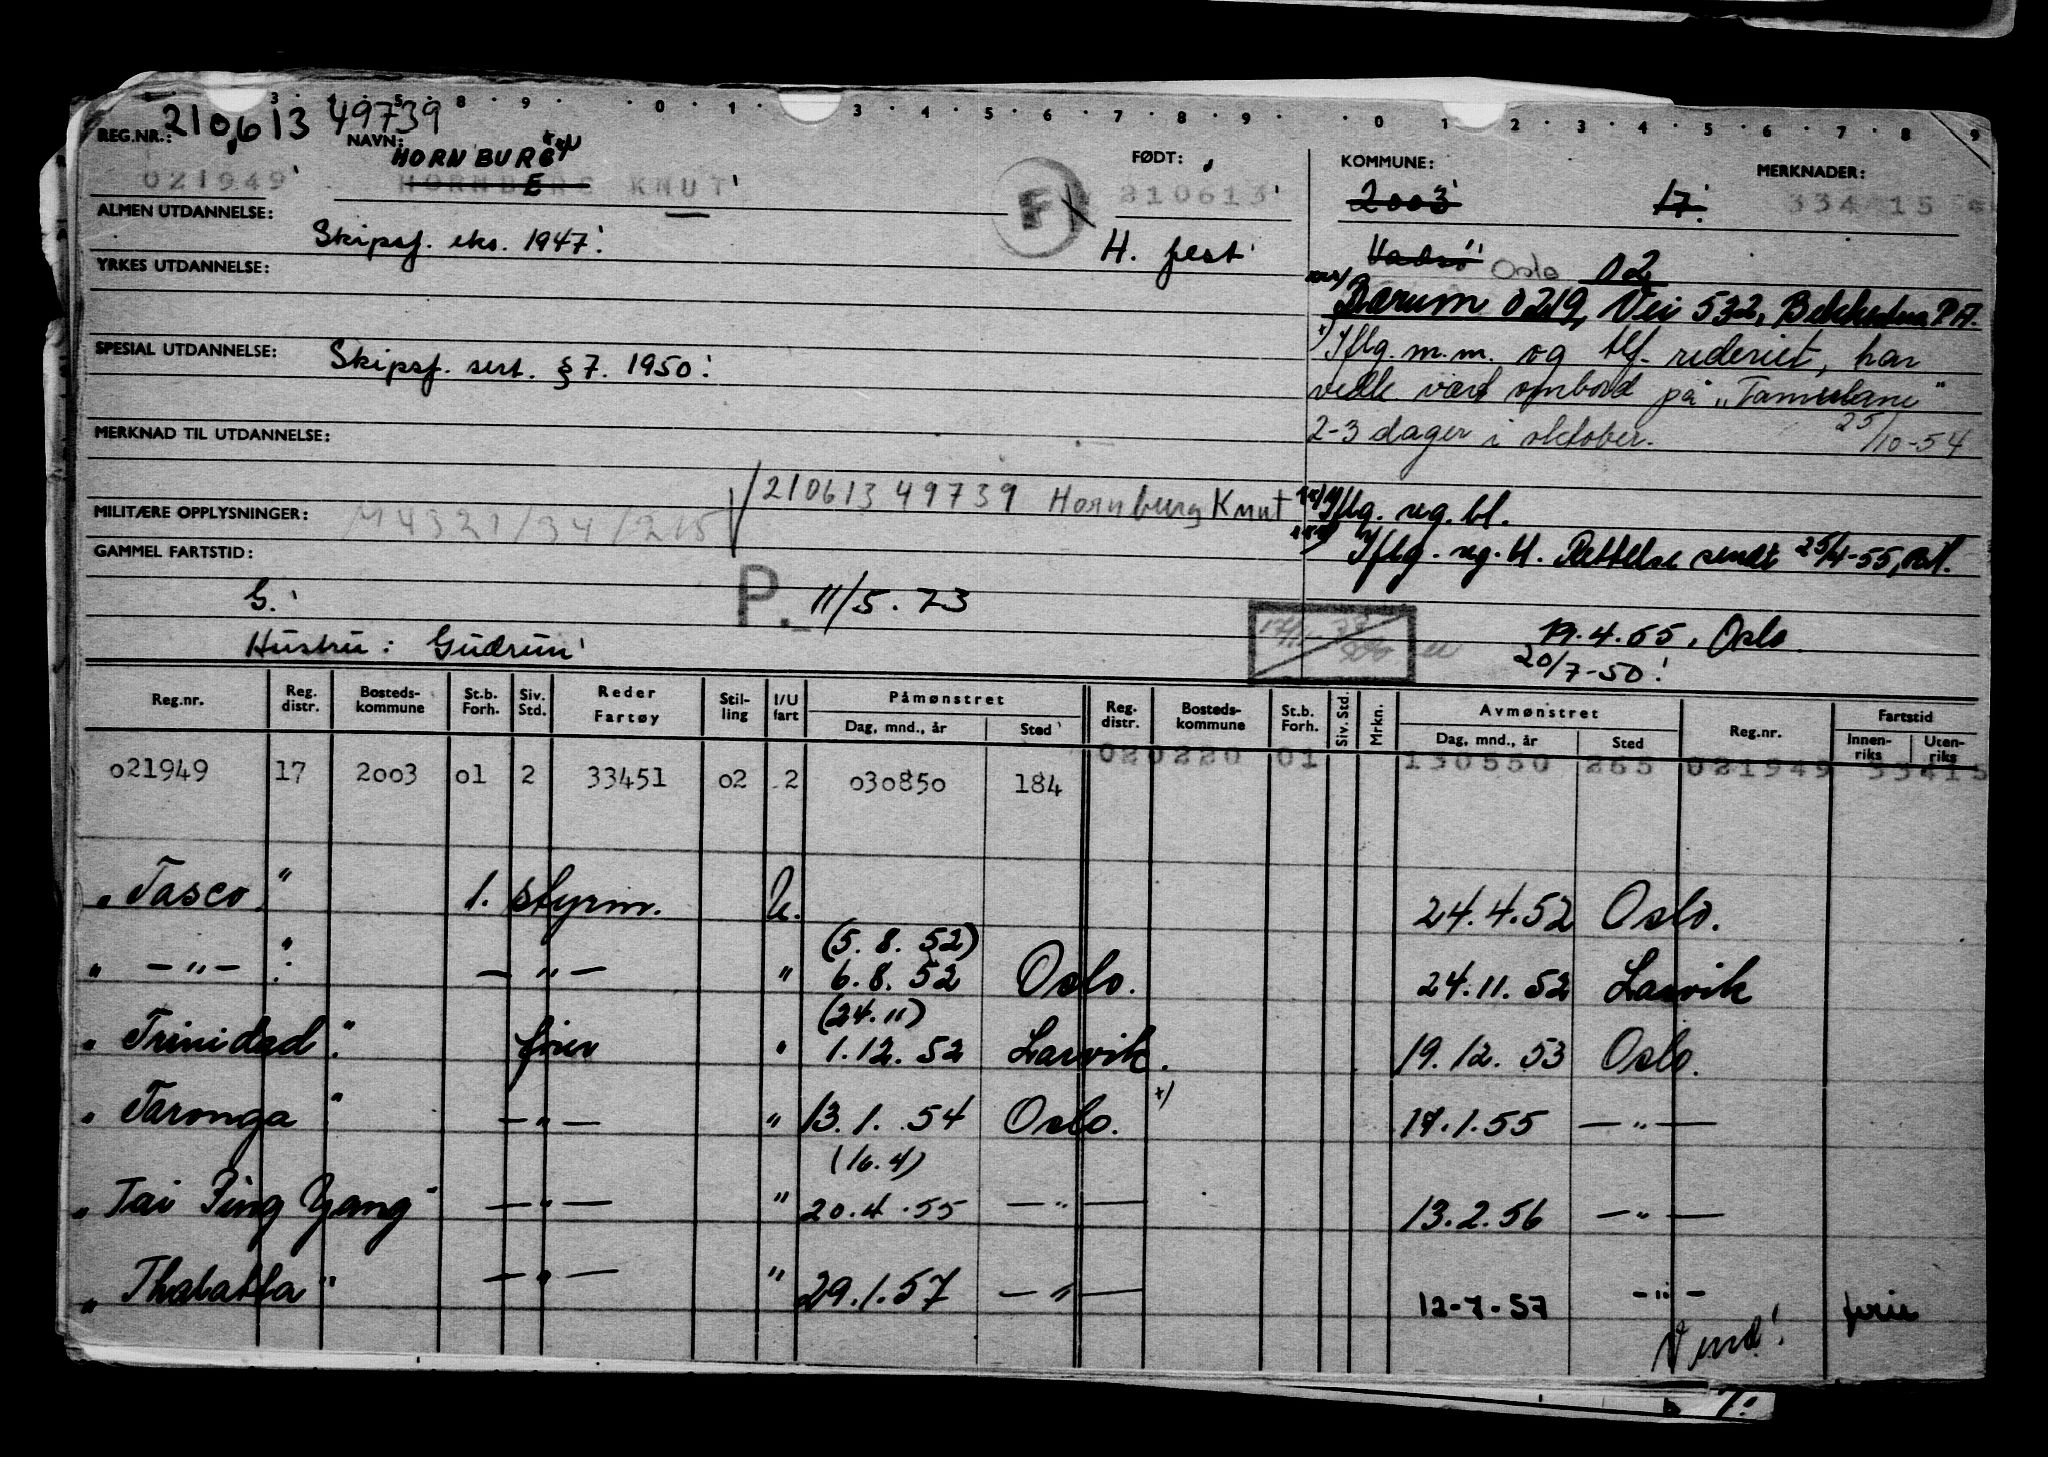 3 · 4 · 5 · 8 · 9 · · 0 · 1 · 3 · 4 · 5 · 6 · 7 · 8 · 9 · · 0 1 · 2 · 3 · 4 · 5 · 6 · 7 · 8 9
REG.NR.: 210613 49739
NAVN: HORNBURG
FØDT:
KOMMUNE:
MERKNADER:
021949 KNUT 210613 2003 17. 334 15
ALMEN UTDANNELSE: Skipsf. eks. 1947.
F
H. fest
Vadsø Oslo 02
YRKES UTDANNELSE:
Bærum 0219, Vei 532, Bekkestua P.A.
SPESIAL UTDANNELSE: Skipsf. sert. § 7. 1950.
x) Iflg. m.m. og tlf. rederiet, har
vedk. vært ombord på "Tamerlane"
2-3 dager i oktober. 25/10-54
MERKNAD TIL UTDANNELSE:
210613 49739 Hornburg Knut
xx) Iflg. reg. bl.
MILITÆRE OPPLYSNINGER: M4321/34/215
xxx) Iflg. reg. bl. Rettelse sendt 25/4-55,
GAMMEL FARTSTID:
G.
P. 11/5.73
19.4.55, Oslo.
Hustru: Gudrun
20/7-50
Reg.nr. Reg. distr. Bosteds-kommune St.b. Forh. Siv. Std. Reder Fartøy Stil-ling I/U fart Påmønstret Dag, mnd., år Sted Reg. distr. Bosteds-kommune St.b. Forh. Siv. Std. Mrkn. Avmønstret Dag, mnd., år Sted Reg.nr. Fartstid Innen-riks Uten-riks
021949 17 2003 01 2 33451 02 2 030850 184 020220 01 130550 265 021949 33415
"Tasco" 1. styrm. U. 24.4.52 Oslo.
(5.8.52)
" — " — " — " — " 6.8.52 Oslo. 24.11.52 Larvik
(24.11)
"Trinidad" fører " 1.12.52 Larvik. 19.12.53 Oslo.
"Taronga" — " — " 13.1.54 Oslo. x) 17.1.55 — " —
(16.4)
"Tai Ping Yang" — " — " 20.4.55 — " — 13.2.56 — " —
"Thalatta" — " — " 29.1.57 — " — 12-7-57 — " —
Vend!